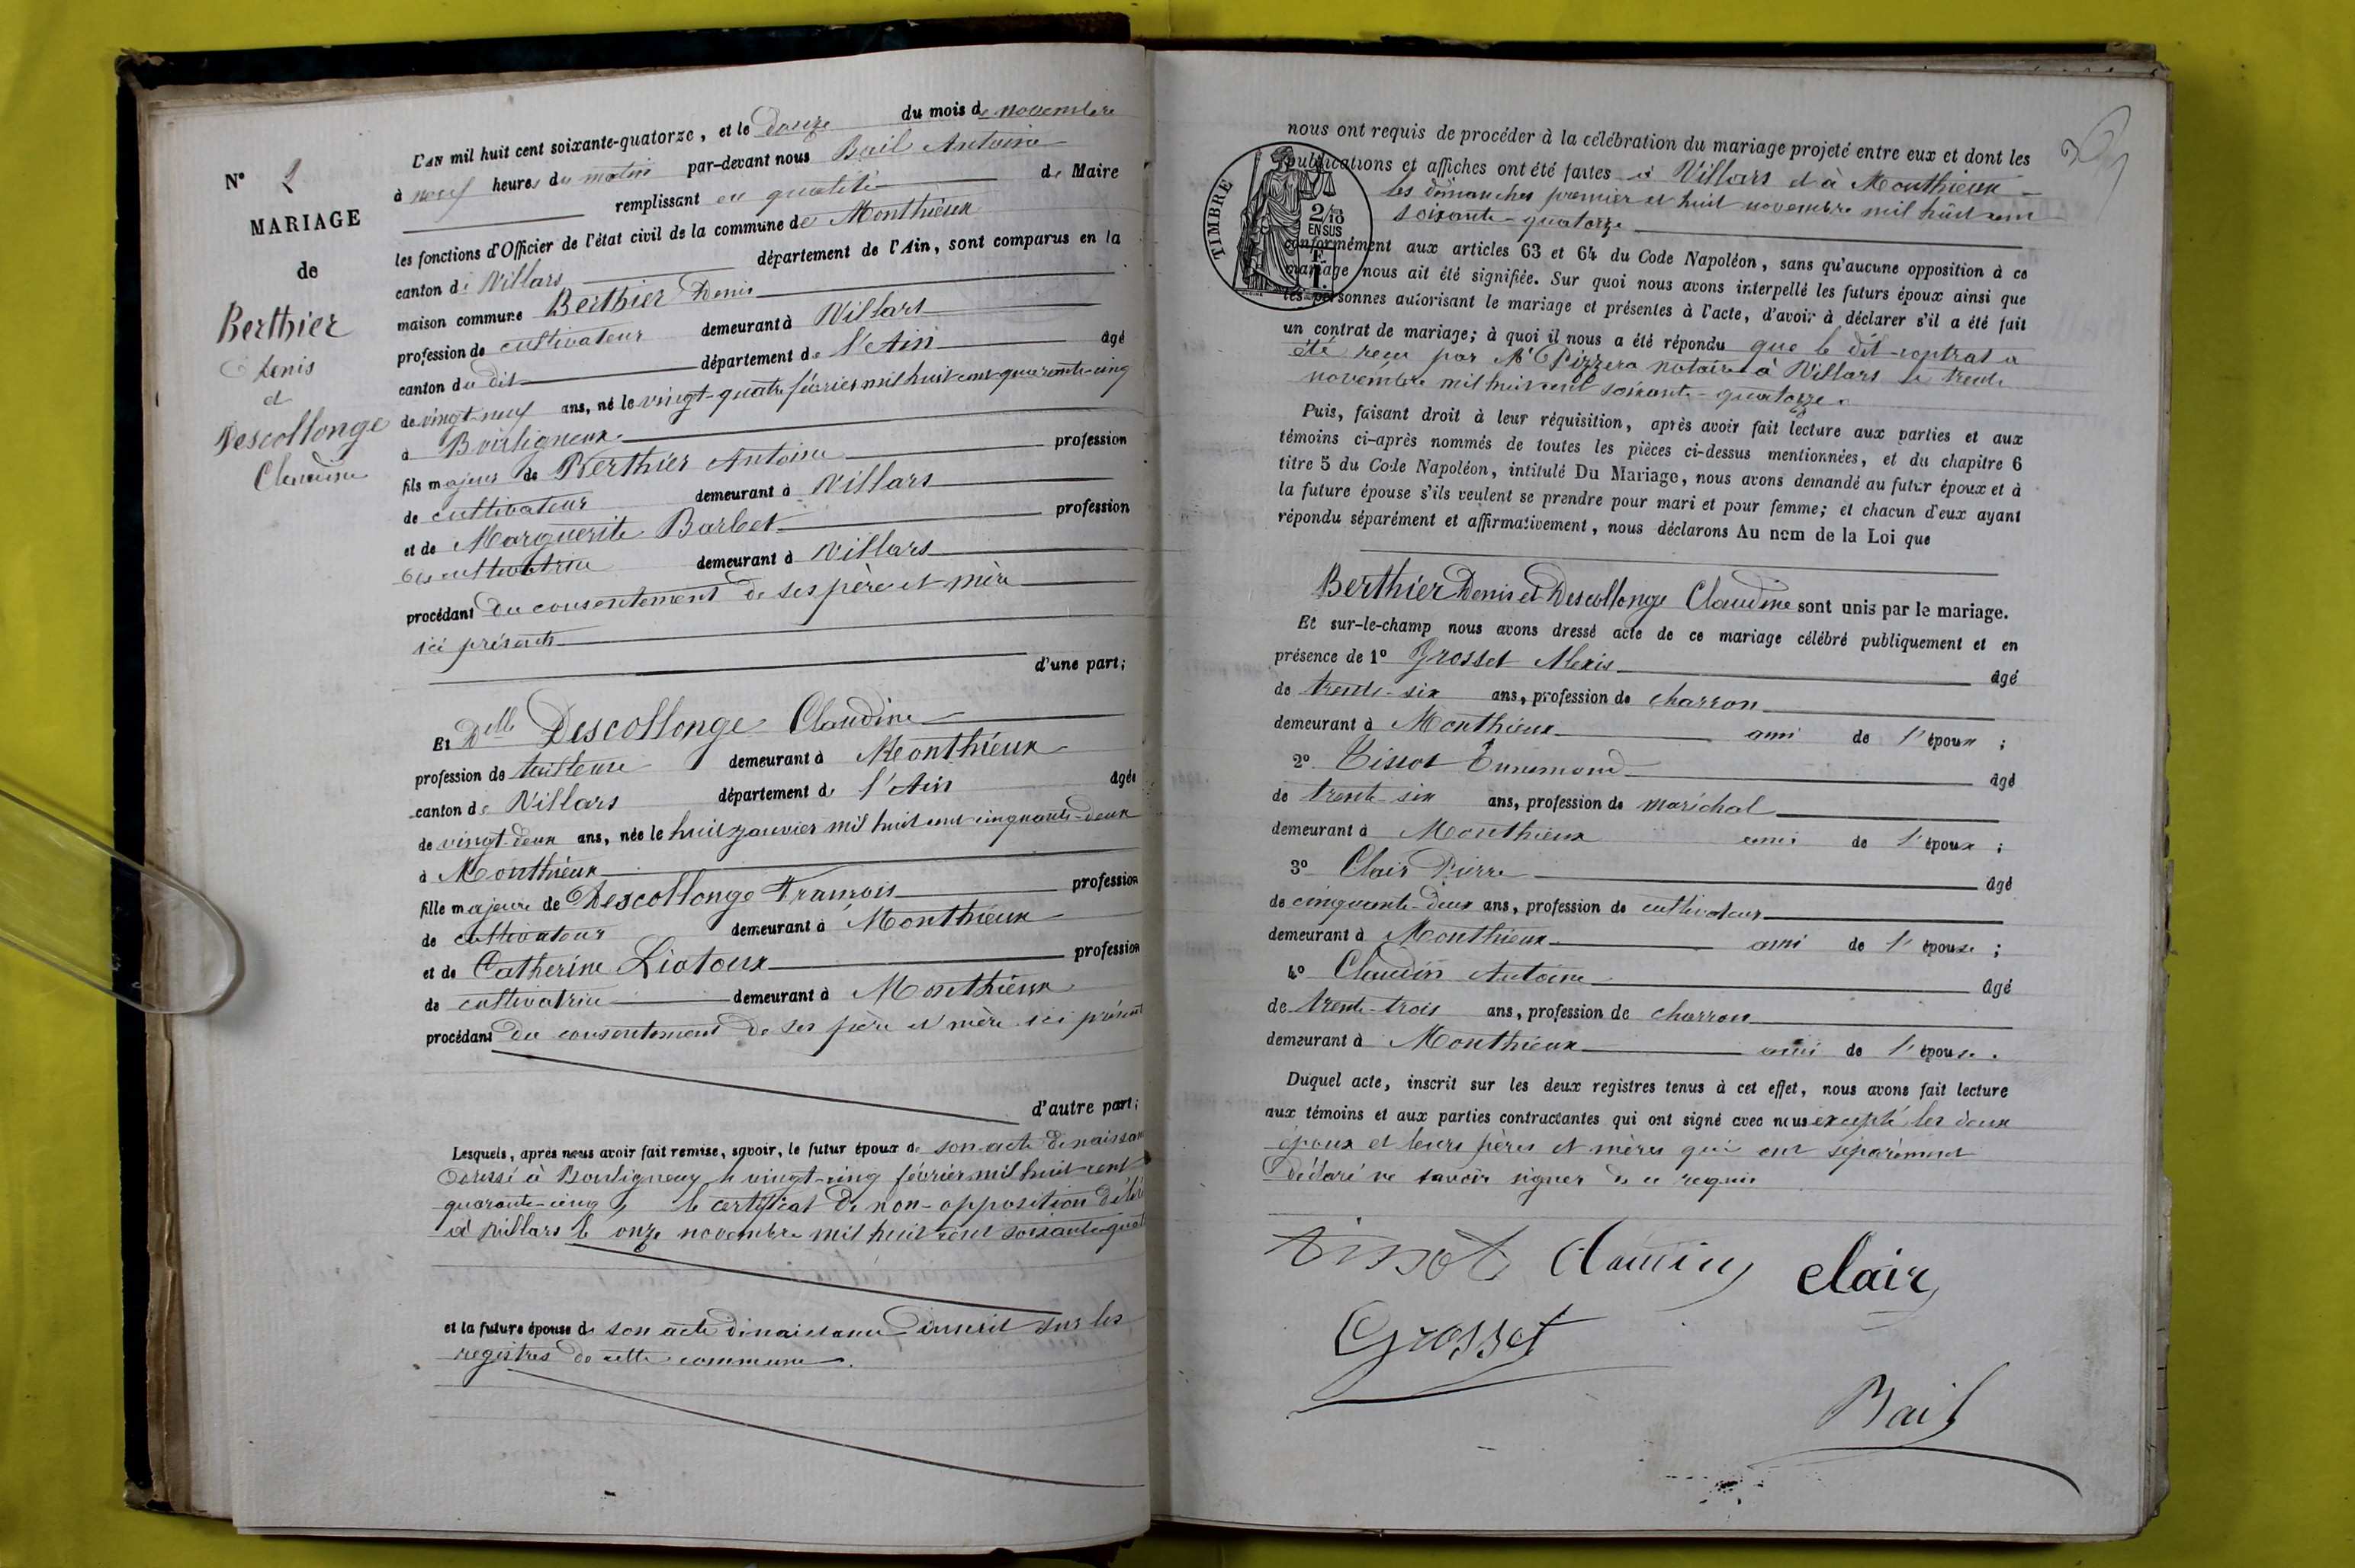 N° 2
MARIAGE
de
Berthier
Denis
et
Descollonge
Claudine
L'AN mil huit cent soixante-quatorze, et le douze du mois de novembre
à neuf heures du matin par-devant nous Bail Antoine
remplissant en qualité de Maire
les fonctions d'Officier de l'état civil de la commune de Monthieux
canton de Villars département de l'Ain, sont comparus en la
maison commune Berthier Denis
profession de cultivateur demeurant à Villars
canton du dit département de l'Ain âgé
de vingt-neuf ans, né le vingt-quatre février mil huit cent quarante-cinq
à Bouligneux
fils majeur de Berthier Antoine profession
de cultivateur demeurant à Villars
et de Marguerite Barbet profession
de cultivatrice demeurant à Villars
procédant du consentement de ses père et mère
ici présents
d'une part;
Et Delle Descollonge Claudine
profession de tailleuse demeurant à Monthieux
canton de Villars département de l'Ain âgée
de vingt-deux ans, née le huit janvier mil huit cent cinquante-deux
à Monthieux
fille majeure de Descollonge François profession
de cultivateur demeurant à Monthieux
et de Catherine Liatoux profession
de cultivatrice demeurant à Monthieux
procédant du consentement de ses père et mère ici présents
d'autre part;
Lesquels, après nous avoir fait remise, savoir, le futur époux de son acte de naissance
dressé à Bouligneux le vingt-cinq février mil huit cent
quarante-cinq, le certificat de non-opposition délivré
à Villars le onze novembre mil huit cent soixante-quat
et la future épouse de son acte de naissance inscrit sur les
registres de cette commune.
nous ont requis de procéder à la célébration du mariage projeté entre eux et dont les
publications et affiches ont été faites à Villars et à Monthieux
les dimanches premier et huit novembre mil huit cent
soixante-quatorze
TIMBRE
2/10
EN SUS
F.
1.
conformément aux articles 63 et 64 du Code Napoléon, sans qu'aucune opposition à ce
mariage nous ait été signifiée. Sur quoi nous avons interpellé les futurs époux ainsi que
les personnes autorisant le mariage et présentes à l'acte, d'avoir à déclarer s'il a été fait
un contrat de mariage; à quoi il nous a été répondu que le dit contrat a
été reçu par Me Pizzera notaire à Villars le trente
novembre mil huit cent soixante-quatorze.
Puis, faisant droit à leur réquisition, après avoir fait lecture aux parties et aux
témoins ci-après nommés de toutes les pièces ci-dessus mentionnées, et du chapitre 6
titre 5 du Code Napoléon, intitulé Du Mariage, nous avons demandé au futur époux et à
la future épouse s'ils veulent se prendre pour mari et pour femme; et chacun d'eux ayant
répondu séparément et affirmativement, nous déclarons Au nom de la Loi que
Berthier Denis et Descollonge Claudine sont unis par le mariage.
Et sur-le-champ nous avons dressé acte de ce mariage célébré publiquement et en
présence de 1° Grosset Alexis âgé
de trente-six ans, profession de charron
demeurant à Monthieux ami de l'époux ;
2° Tissot Ennemond âgé
de trente-six ans, profession de maréchal
demeurant à Monthieux ami de l'époux ;
3° Clair Pierre âgé
de cinquante-deux ans, profession de cultivateur
demeurant à Monthieux ami de l'épouse ;
4° Claudin Antoine âgé
de trente-trois ans, profession de charron
demeurant à Monthieux ami de l'épouse.
Duquel acte, inscrit sur les deux registres tenus à cet effet, nous avons fait lecture
aux témoins et aux parties contractantes qui ont signé avec nous excepté les deux
époux et leurs pères et mères qui ont séparément
déclaré ne savoir signer de ce requis
tissot Claudin Clair
Grosset
Bail